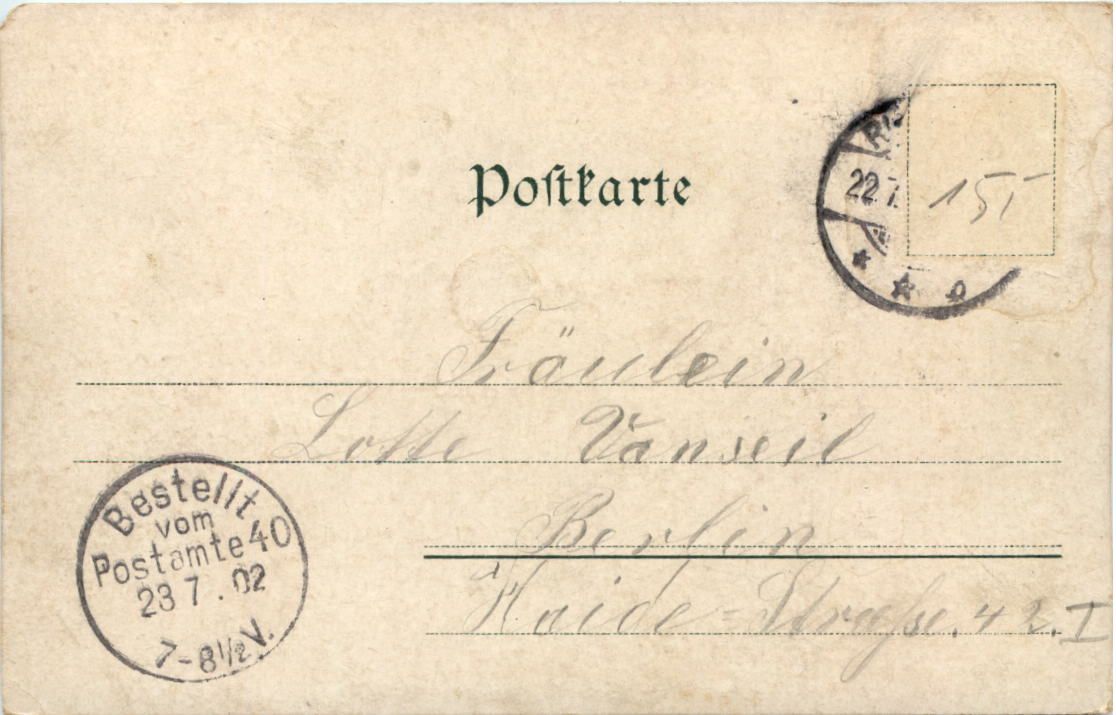 Postkarte
22.7.
155
Fräulein
Lotte Vanseil
Berlin
Haide-Straße. 42. I
Bestellt
vom
Postamte 40
23 7 . 02
7-8½V.